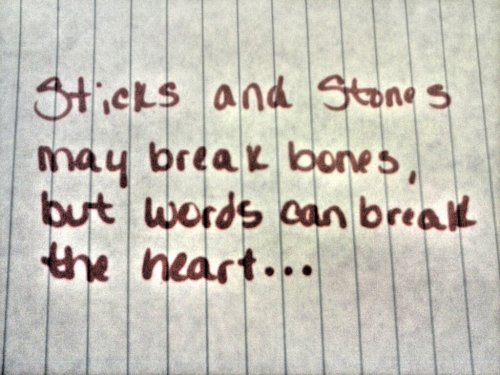 Sticks and Stones
may break bones,
but words can break
the heart...